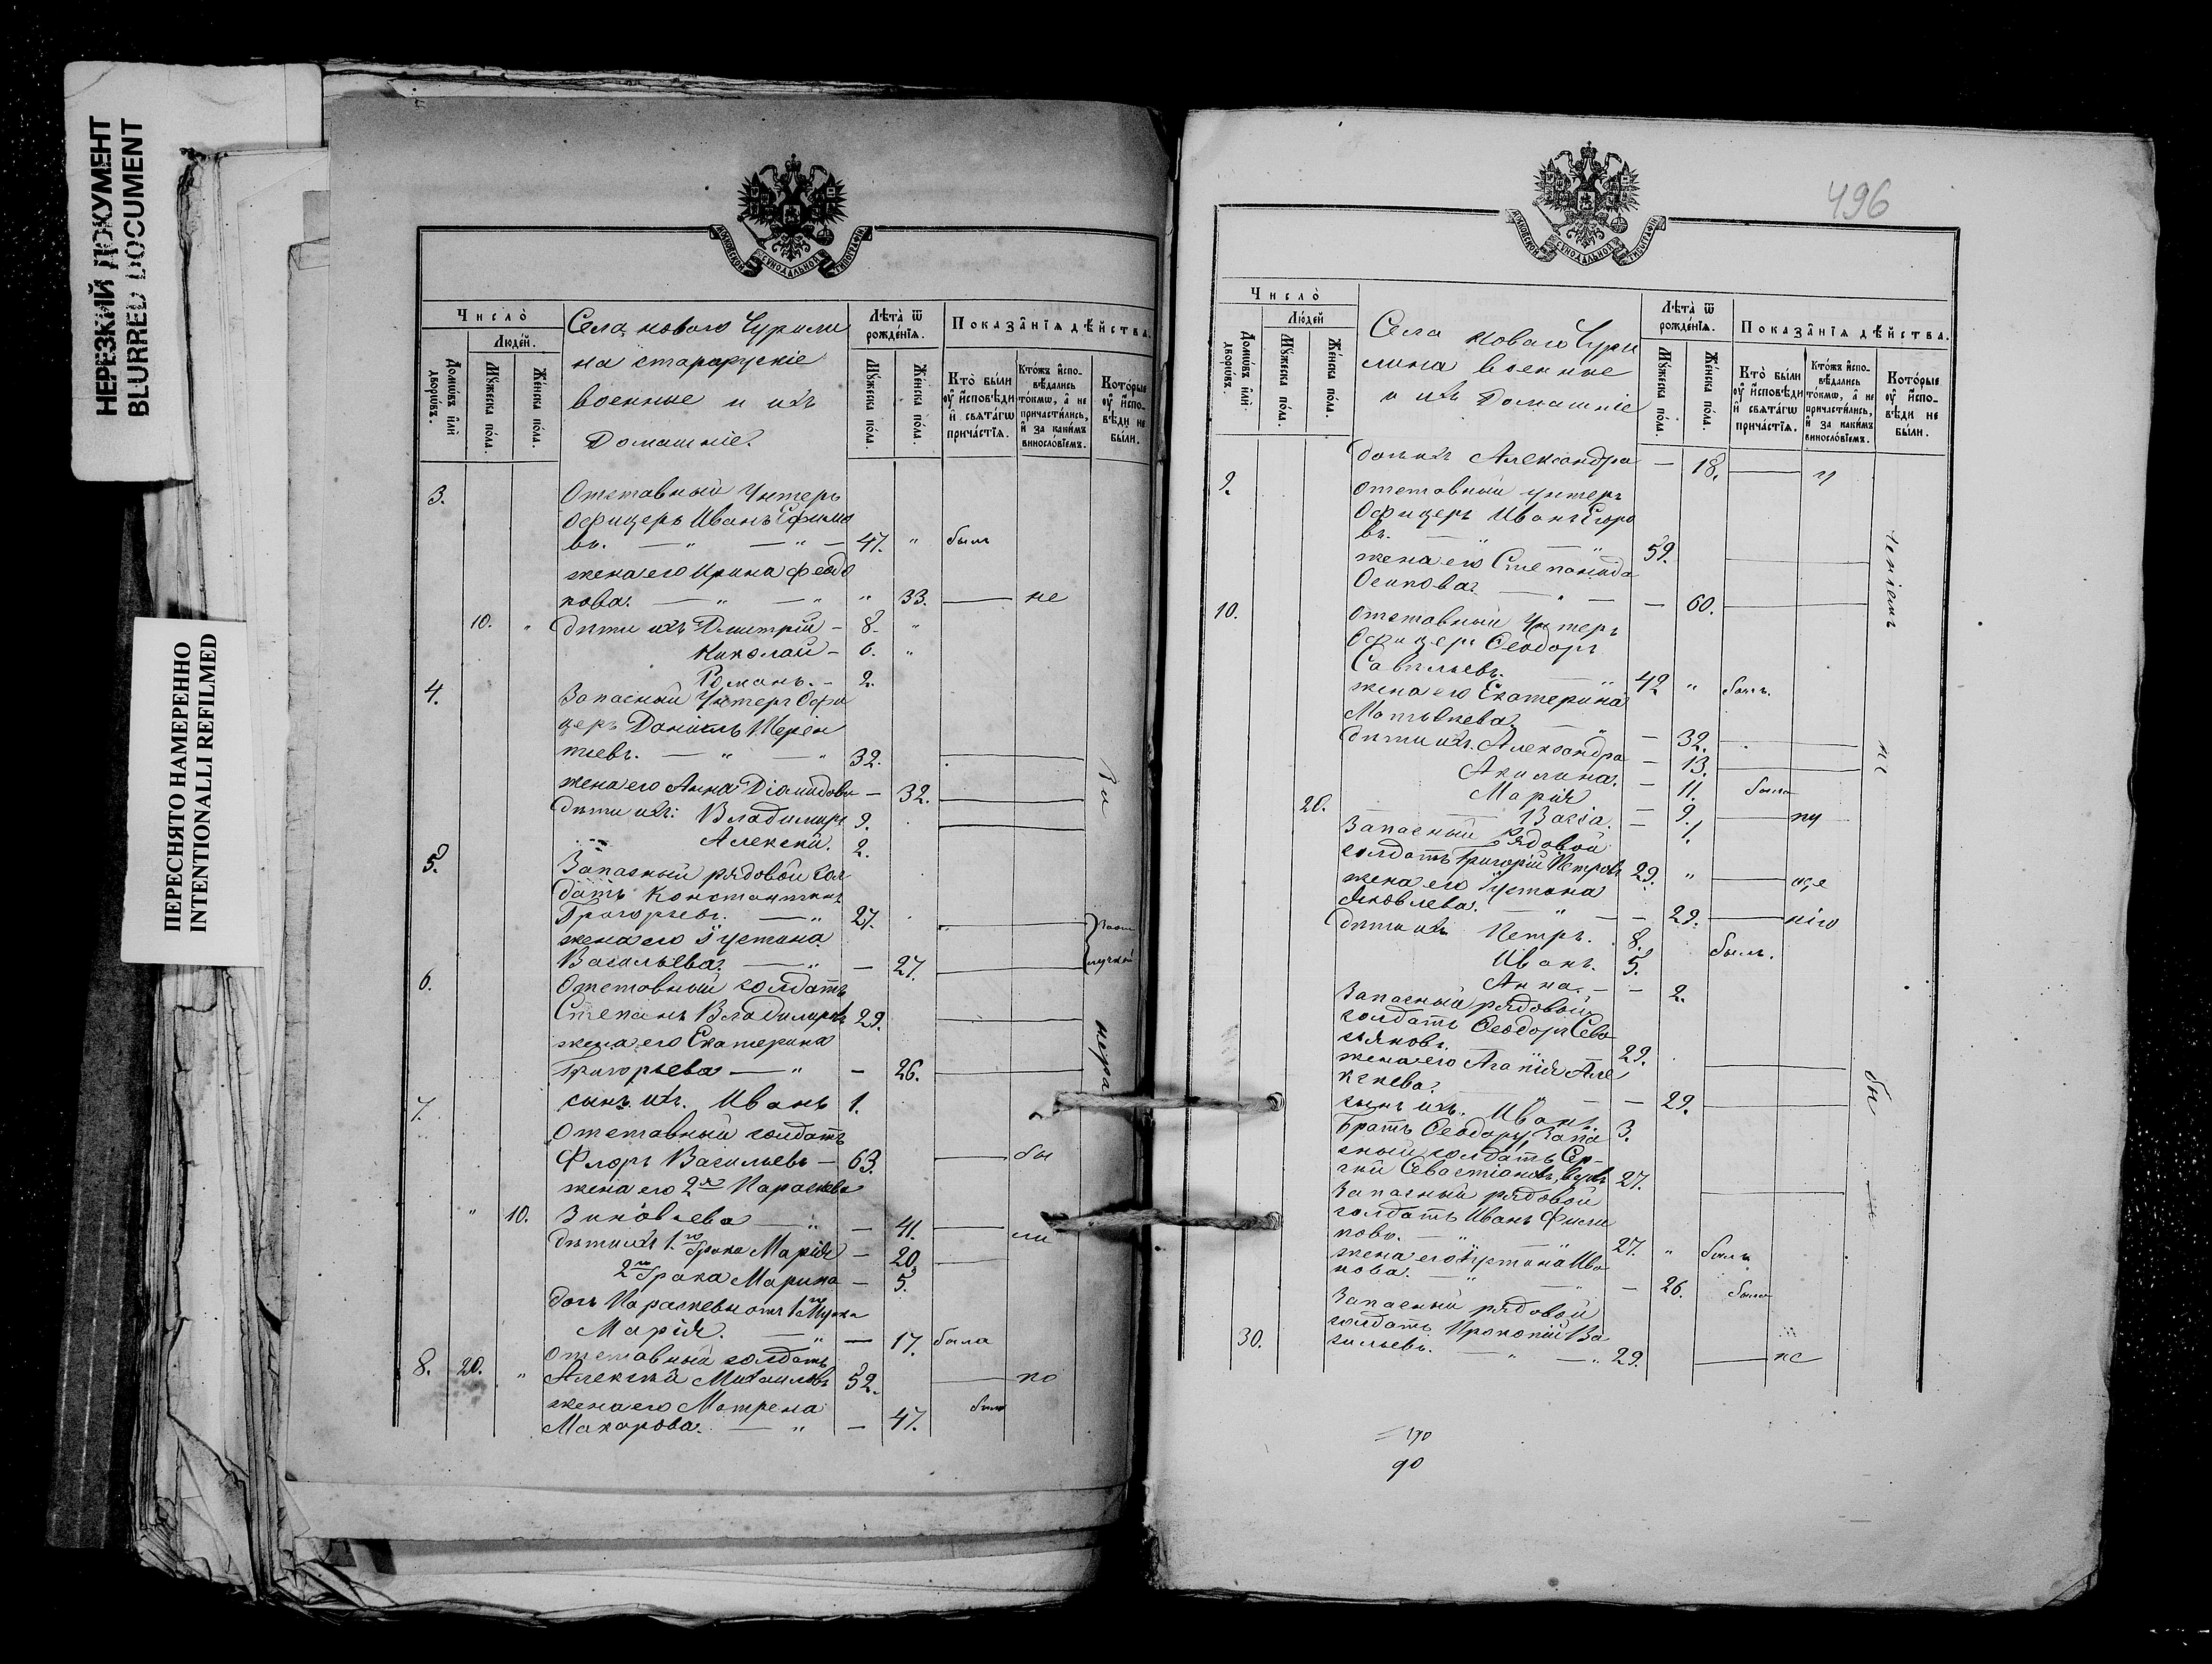 НЕРЕЗКИЙ ДОКУМЕНТ
BLURRED DOCUMENT
ПЕРЕСНЯТО НАМЕРЕННО
INTENTIONALLI REFILMED
МОСКОВСКОЙ СѴНОДАЛЬНОЙ ТИПОГРАФІИ
Число̀
Домѡ́въ и҆лѝ дворѡ́въ.
Люде́й.
Мꙋ́жеска по́ла.
Же́нска по́ла.
Села новаго Чурили
на старорускіе
военные и ихъ
Домашніе.
Лѣта̀ ѿ рожде́нїѧ.
Мꙋ́жеска по́ла.
Же́нска по́ла.
Показа̑нїѧ дѣ́йства.
Кто̀ бы́ли ᲂу҆ и҆сповѣ́ди и҆ свѧта́гѡ прича́стїѧ.
Кто́жъ и҆спо-
вѣ́дались
то́кмѡ, а҆ не
причасти́лись,
и҆ за каки́мъ
виносло́вїемъ.
Кото́рые ᲂу҆ и҆спо-
вѣ́ди не бы́ли.
3. Отставный Унтеръ
Офицеръ Иванъ Ефимо
въ. — " — " — 47. " былъ
жена его Ирина Федо
това. — " — " " 33. — не
10. " дѣти ихъ Дмитрій - 8. "
Николай - 6. "
Романъ. - 2.
4. Запасный Унтеръ Офи
церъ Даніилъ Терен
тіевъ. — " — " 32. —
жена его Анна Діомидова — 32. —
дѣти ихъ: Владимиръ 9. —
Алексѣй. 2.
За
5. Запасный рядовой сол
датъ Константинъ
Григорьевъ. — " 27. —
жена его Іустина
Васильева. — " — 27. —
6. Отставный солдатъ
Степанъ Владиміровъ 29. —
жена его Екатерина
Григорьева — " — 26. —
сынъ ихъ. Иванъ 1.
нера
7. Отставный солдатъ
Флоръ Васильевъ — 63. — бы
жена его 2я Параскева
" 10. Зиновьева — " — 41. — ли
дѣти ихъ 1го брака Марія — 20. —
2го брака Марина — 5.
дочь Параскевы отъ 1го мужа
Марія. — " — 17. была
8. 20. " Отставный солдатъ
Алексѣй Михаиловъ 52. — по
жена его Матрена была
Макарова. — " — 47.
496
МОСКОВСКОЙ СѴНОДАЛЬНОЙ ТИПОГРАФІИ
Число̀
Домѡ́въ и҆лѝ дворѡ́въ.
Люде́й
Мꙋ́жеска по́ла.
Же́нска по́ла.
Села новаго Чури
лина военные
и ихъ Домашніе
Лѣта̀ ѿ рожде́нїѧ.
Мꙋ́жеска по́ла.
Же́нска по́ла.
Показа̑нїѧ дѣ́йства.
Кто̀ бы́ли ᲂу҆ и҆сповѣ́ди и҆ свѧта́гѡ прича́стїѧ.
Кто́жъ и҆спо-
вѣ́дались
то́кмѡ, а҆ не
причасти́лись,
и҆ за каки́мъ
виносло́вїемъ.
Кото́рые ᲂу҆ и҆спо-
вѣ́ди не бы́ли.
дочь ихъ Александра — 18. —
9. Отставный унтеръ
Офицеръ Иванъ Егоро
въ. — " — " 59. —
жена его Степанида
Осипова. — " — — 60. —
ченіемъ
10. Отставный Унтеръ
Офицеръ Ѳеодоръ
Савельевъ. — " 42 " былъ.
жена его Екатерина
Матвѣева. — " — 32. —
дѣти ихъ. Александра — 13. —
Акилина. — 11. была
Марія — 9. — пу
20. Васса. — 1.
не
Запасный рядовой
солдатъ Григорій Петровъ 29. " —
жена его Іустина
Яковлева. — " — — 29. — нію
дѣти ихъ Петръ. 8. былъ.
Иванъ. 5.
Анна. — — 2.
Запасный рядовой
солдатъ Ѳеодоръ Сева
тьяновъ. 29. —
жена его Агапія Але
ксѣева. — 29. —
сынъ ихъ. Иванъ. 3.
бы
Братъ Ѳеодору, Запа
сный солдатъ Сер-
гѣй Севастіановъ, вдовъ 27. —
Запасный рядовой
солдатъ Иванъ Фили
повъ. — " 27. " былъ
жена его Іустина Ива
нова. — " — 26. была
30. Запасный рядовой
солдатъ Прокопій Ва
сильевъ. — " — " 29. — не
90